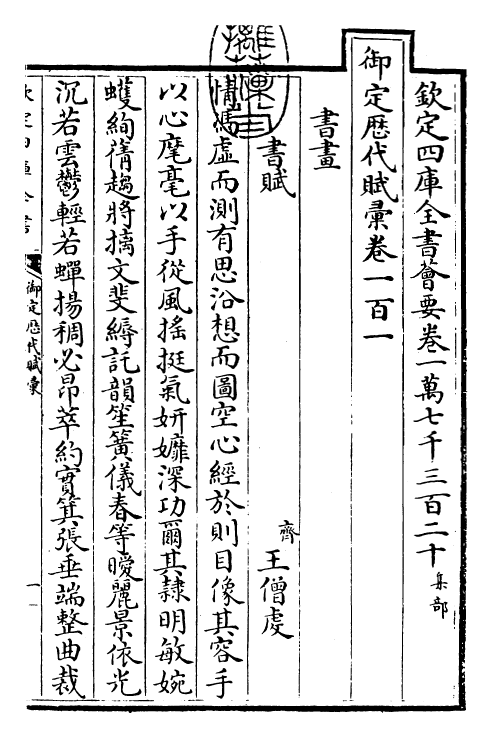 欽定四庫全書薈要卷一萬七千三百二十集部
御定歷代賦彙卷一百一
書畫
書賦
齊王僧虔
情憑虛而測有思沿想而圖空心經於則目像其容手
以心麾毫以手從風搖挺氣妍嬥深功爾其隸明敏婉
蠖絢蒨趨將摛文斐縟託韻笙簧儀春等曖麗景依光
沉若雲鬱輕若蟬揚稠必昂萃約實箕張垂端整曲裁
御定歷代賦彙
一